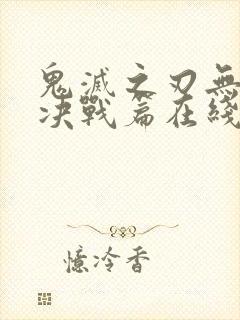 鬼滅之刃無
决戰篇在綫
憶冷香